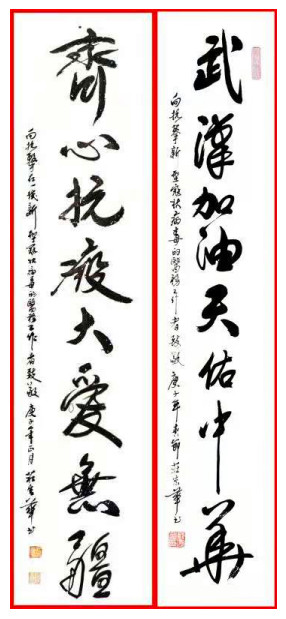 武漢加油天佑中華
向抗擊新型冠狀病毒的醫務工作者致敬 庚子年春節
齊心抗疫大愛無疆
向抗擊在一線新型冠狀病毒的醫務工作者致敬 庚子年正月